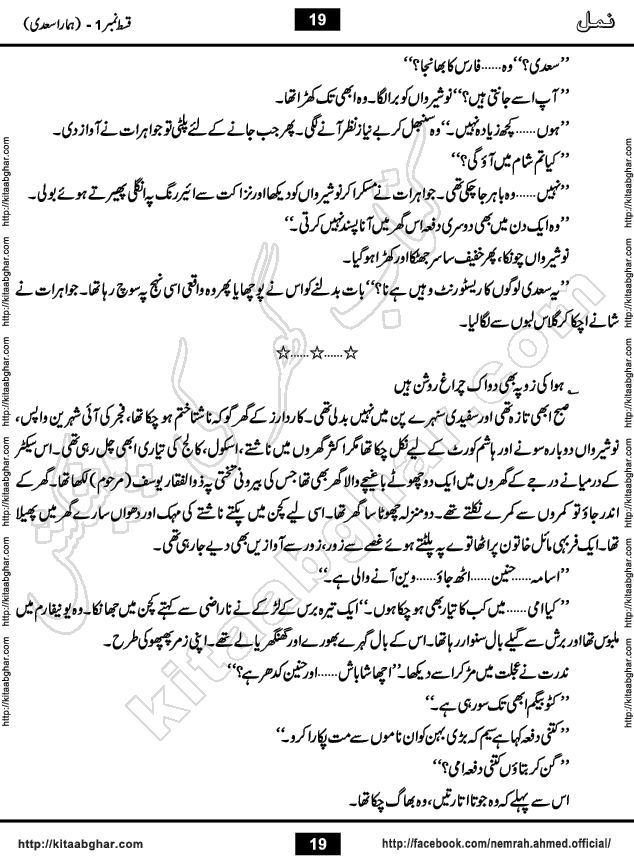 نمل
19
قسط نمبر 1 - (ہمارا سعدی)
’’سعدی؟‘‘ وہ……فارس کا بھانجا؟‘‘
’’آپ اسے جانتی ہیں؟‘‘ نوشیرواں کو برا لگا۔ وہ ابھی تک کھڑا تھا۔
’’ہوں……کچھ زیادہ نہیں۔‘‘ وہ سنبھل کر بے نیاز نظر آنے لگی۔ پھر جب جانے کے لئے پلٹی تو جواہرات نے آواز دی۔
’’کیا تم شام میں آؤ گی؟‘‘
’’نہیں……وہ باہر جا چکی تھی۔ جواہرات نے مسکرا کر نوشیرواں کو دیکھا اور نزاکت سے ائیر رنگ پہ انگلی پھیرتے ہوئے بولی۔
’’وہ ایک دن میں بھی دوسری دفعہ اس گھر میں آنا پسند نہیں کرتی۔‘‘
نوشیرواں چونکا، پھر خفیف سا سر جھٹکا اور کھڑا ہو گیا۔
’’یہ سعدی لوگوں کا ریسٹورنٹ وہیں ہے نا؟‘‘ بات بدلنے کو اس نے پوچھا یا پھر وہ واقعی اسی نہج پہ سوچ رہا تھا۔ جواہرات نے
شانے اچکا کر گلاس لبوں سے لگا لیا۔
☆……☆……☆
؂ ہوا کی زد پہ بھی دو اک چراغ روشن ہیں
صبح ابھی تازہ تھی اور سفیدی سنہرے پن میں نہیں بدلی تھی۔ کاردارز کے گھر گو کہ ناشتا ختم ہو چکا تھا، فجر کی آئی شہرین واپس،
نوشیرواں دوبارہ سونے اور ہاشم کورٹ کے لیے نکل چکا تھا مگر اکثر گھروں میں ناشتے، اسکول، کالج کی تیاری ابھی چل رہی تھی۔ اس سیکٹر
کے درمیانے درجے کے گھروں میں ایک دو چھوٹے باغیچے والا گھر بھی تھا جس کی بیرونی تختی پہ ذوالفقار یوسف (مرحوم) لکھا تھا۔ گھر کے
اندر جاؤ تو کمروں سے کمرے نکلتے تھے۔ دو منزلہ چھوٹا سا گھر تھا۔ اسی لیے کچن میں پکتے ناشتے کی مہک اور دھواں سارے گھر میں پھیلا
تھا۔ ایک فربہی مائل خاتون پراٹھا توے پہ پلٹتے ہوئے غصے سے زور، زور سے آوازیں بھی دیے جا رہی تھی۔
’’اسامہ……حنین……اٹھ جاؤ……وین آنے والی ہے۔‘‘
’’کیا امی……میں کب کا تیار بھی ہو چکا ہوں۔‘‘ ایک تیرہ برس کے لڑکے نے ناراضی سے کہتے کچن میں جھانکا۔ وہ یونیفارم میں
ملبوس تھا اور برش سے گیلے بال سنوار رہا تھا۔ اس کے بال گہرے بھورے اور گھنگھریالے تھے۔ اپنی زمر پھپھو کی طرح۔
ندرت نے عجلت میں مڑ کر اسے دیکھا۔ ’’اچھا شاباش……اور حنین کدھر ہے؟‘‘
’’کٹو بیگم ابھی تک سو رہی ہے۔‘‘
’’کتنی دفعہ کہا ہے سیم کہ بڑی بہن کو ان ناموں سے مت پکارا کرو۔‘‘
’’گن کر بتاؤں کتنی دفعہ امی؟‘‘
اس سے پہلے کہ وہ جوتا اتارتیں، وہ بھاگ چکا تھا۔
http://kitaabghar.com
19
http://facebook.com/nemrah.ahmed.official/
http://kitaabghar.com
http://kitaabghar.com
http://kitaabghar.com
http://kitaabghar.com
http://kitaabghar.com
http://kitaabghar.com
http://kitaabghar.com
http://kitaabghar.com
http://kitaabghar.com
http://kitaabghar.com
http://kitaabghar.com
http://kitaabghar.com
کتاب گھر کی پیشکش
kitaabghar.com